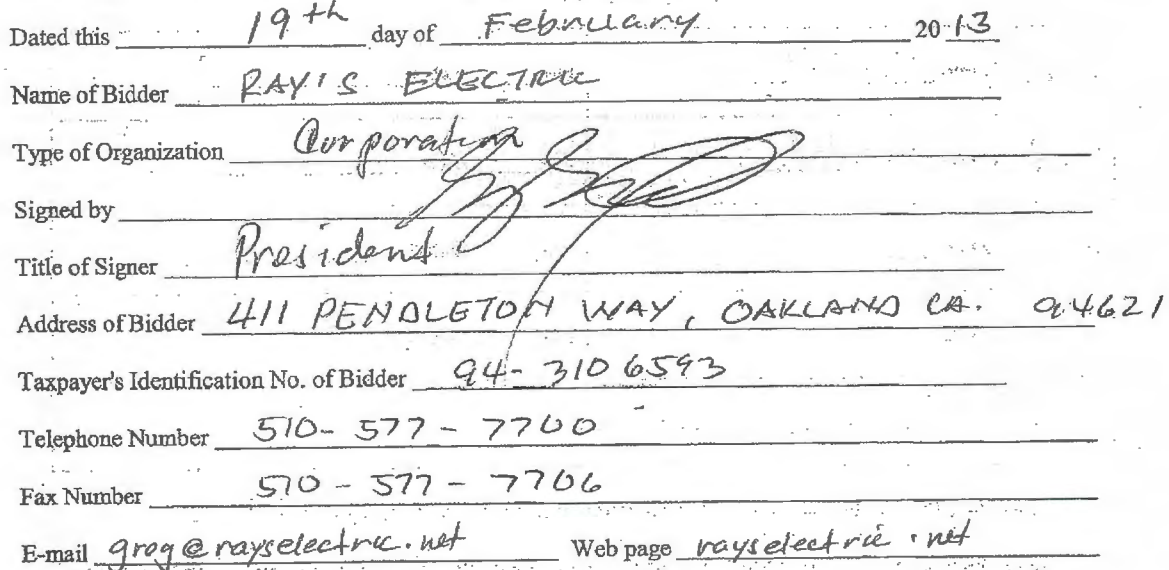 Dated this 19th day of February 2013
Name of Bidder RAY'S ELECTRIC
Type of Organization Corporation
Signed by
Title of Signer President
Address of Bidder 411 PENDLETON WAY, OAKLAND CA. 94621
Taxpayer's Identification No. of Bidder 94-3106593
Telephone Number 510-577-7700
Fax Number 510-577-7706
E-mail greg@rayselectric.net Web page rayselectric.net